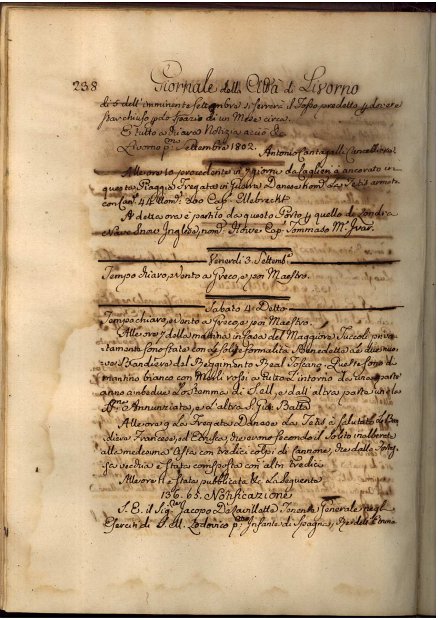 238 Giornale della Città di Livorno
di 6 dell'imminente Settembre si serrerà il Fosso predetto p dovere
star chiuso p lo spazio di un Mese circa.
E tutto a chiara Notizia acciò &c
Livorno p.mo Settembre 1802. Antonio Cantagalli Cancelliere
Alle ore 10 procedente in 7 giorni da Cagliari à ancorato in
questa Piaggia Fregata in Guerra Danese nom. La Tetis armata
con Can. 44 Com. Loo Cap. Ulebrecht
A detta ora è partito da questo Porto p quello di Londra
Nave Inglese nom. Howe Cap. Tommaso M.
Venerdì 3. Settemb.
Tempo chiaro, e vento a Greco, e poi Maestro.
Sabato 4 Detto
Tempo chiaro, e vento a Greco, e poi Maestro.
Alle ore 7 della mattina in Casa del Maggiore Tuccoli priva-
tamente sono state con le solite formalità Benedette le due nuo-
ve Bandiere del Reggimento Real Toscano. Queste sono di
mantino bianco con Merli rossi a tutto l'intorno da una parte
anno ambedue lo Stemma di S. M., e dall'altra parte in
Annunziata, e l'altra S. Gio: Batta
Alle ore 9 La Fregata Danese La Tetis à salutato la Ban-
diera Francese, ed Etrusca, che avemo secondo il solito inalberate
alla medesima Asta con tredici colpi di Cannone, che dalla Fortez-
za vecchia è stata corrisposta con altri tredici
Alle ore 11 è stata pubblicata &c La seguente
136. 63. Notificazione
S. E. il Sig. Jacopo De Lavillette Tenente Generale negl'
Eserciti di S. M. Lodovico p.mo Infante di Spagna, Re dell'Etruria